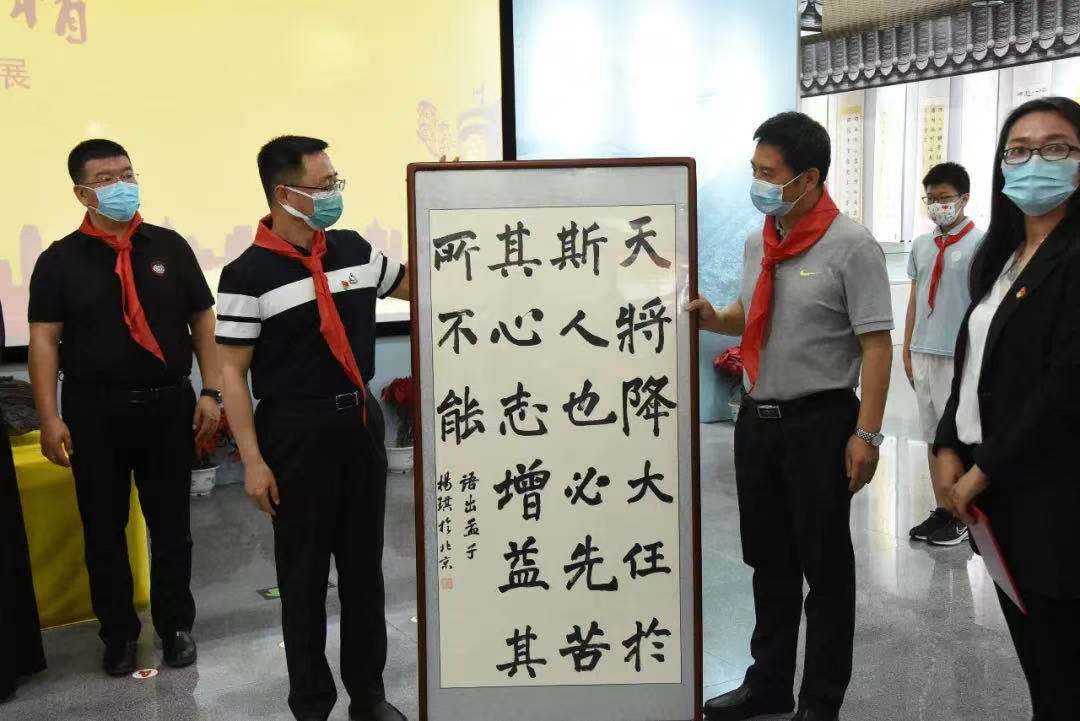 展
天將降大任於
斯人也必先苦
其心志增益其
所不能
語出孟子
楊琪於北京